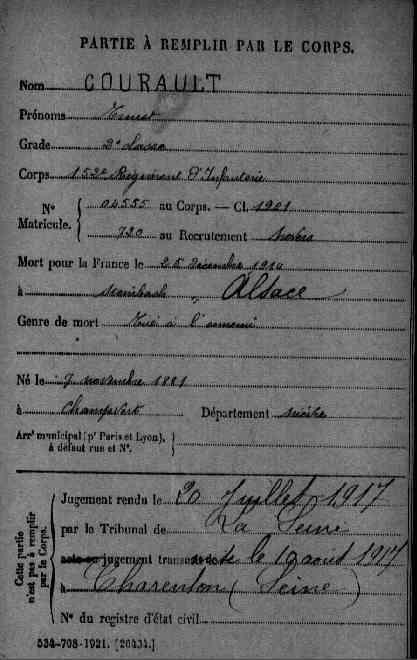 PARTIE À REMPLIR PAR LE CORPS.
Nom COURAULT
Prénoms Ernest
Grade 2e classe
Corps 152e Régiment d'Infanterie
No Matricule. { 04555 au Corps. — Cl. 1901
720 au Recrutement Nevers
Mort pour la France le 25 Décembre 1914
à Steinbach Alsace
Genre de mort Tué à l'ennemi
Né le 7 novembre 1881
à Champvert Département Nièvre
Arrt municipal (pr Paris et Lyon), à défaut rue et No. }
Cette partie n'est pas à remplir par le Corps.
Jugement rendu le 20 Juillet 1917
par le Tribunal de La Seine
acte ou jugement transcrit le 19 août 1917
à Charenton (Seine)
No du registre d'état civil
534-708-1921. [26434.]